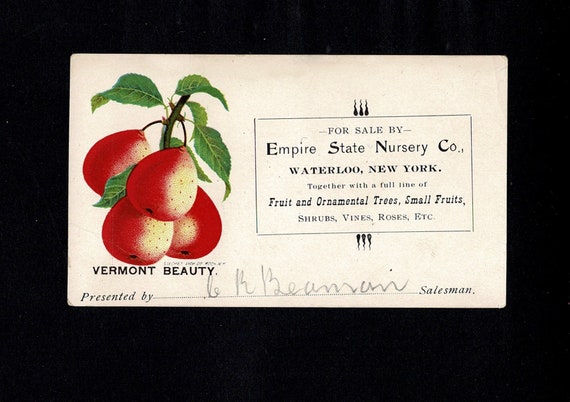 VERMONT BEAUTY.
—FOR SALE BY—
Empire State Nursery Co.,
WATERLOO, NEW YORK.
Together with a full line of
Fruit and Ornamental Trees, Small Fruits,
SHRUBS, VINES, ROSES, ETC.
Presented by C R Beaman Salesman.